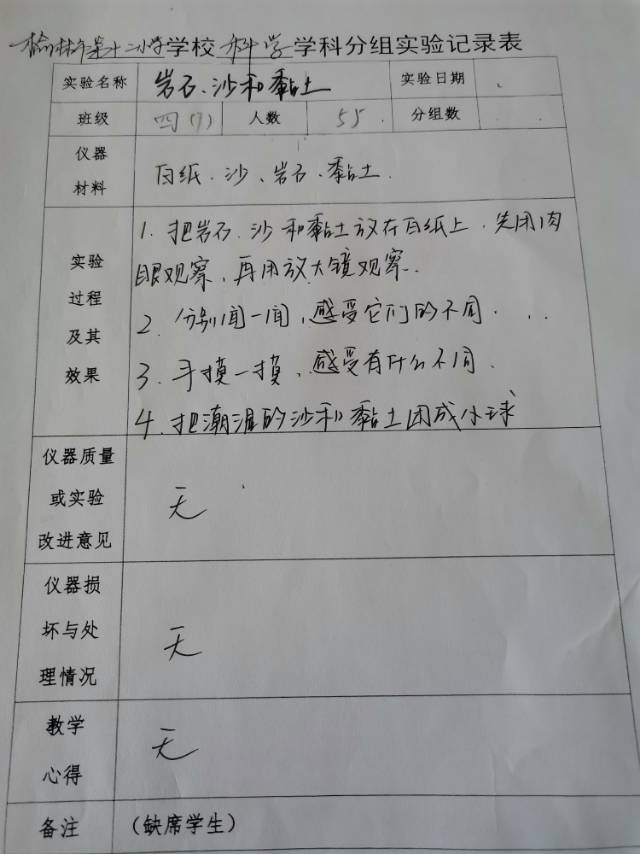 榆林市第十二小学学校 科学学科分组实验记录表
实验名称 岩石、沙和黏土 实验日期
班级 四(1) 人数 55 分组数
仪器
材料
白纸、沙、岩石、黏土.
实验
过程
及其
效果
1. 把岩石、沙和黏土放在白纸上、先用肉
眼观察、再用放大镜观察.
2、分别闻一闻,感受它们的不同.
3、手摸一摸、感受有什么不同.
4、把潮湿的沙和黏土团成小球
仪器质量
或实验
改进意见
无
仪器损
坏与处
理情况
无
教学
心得
无
备注 (缺席学生)